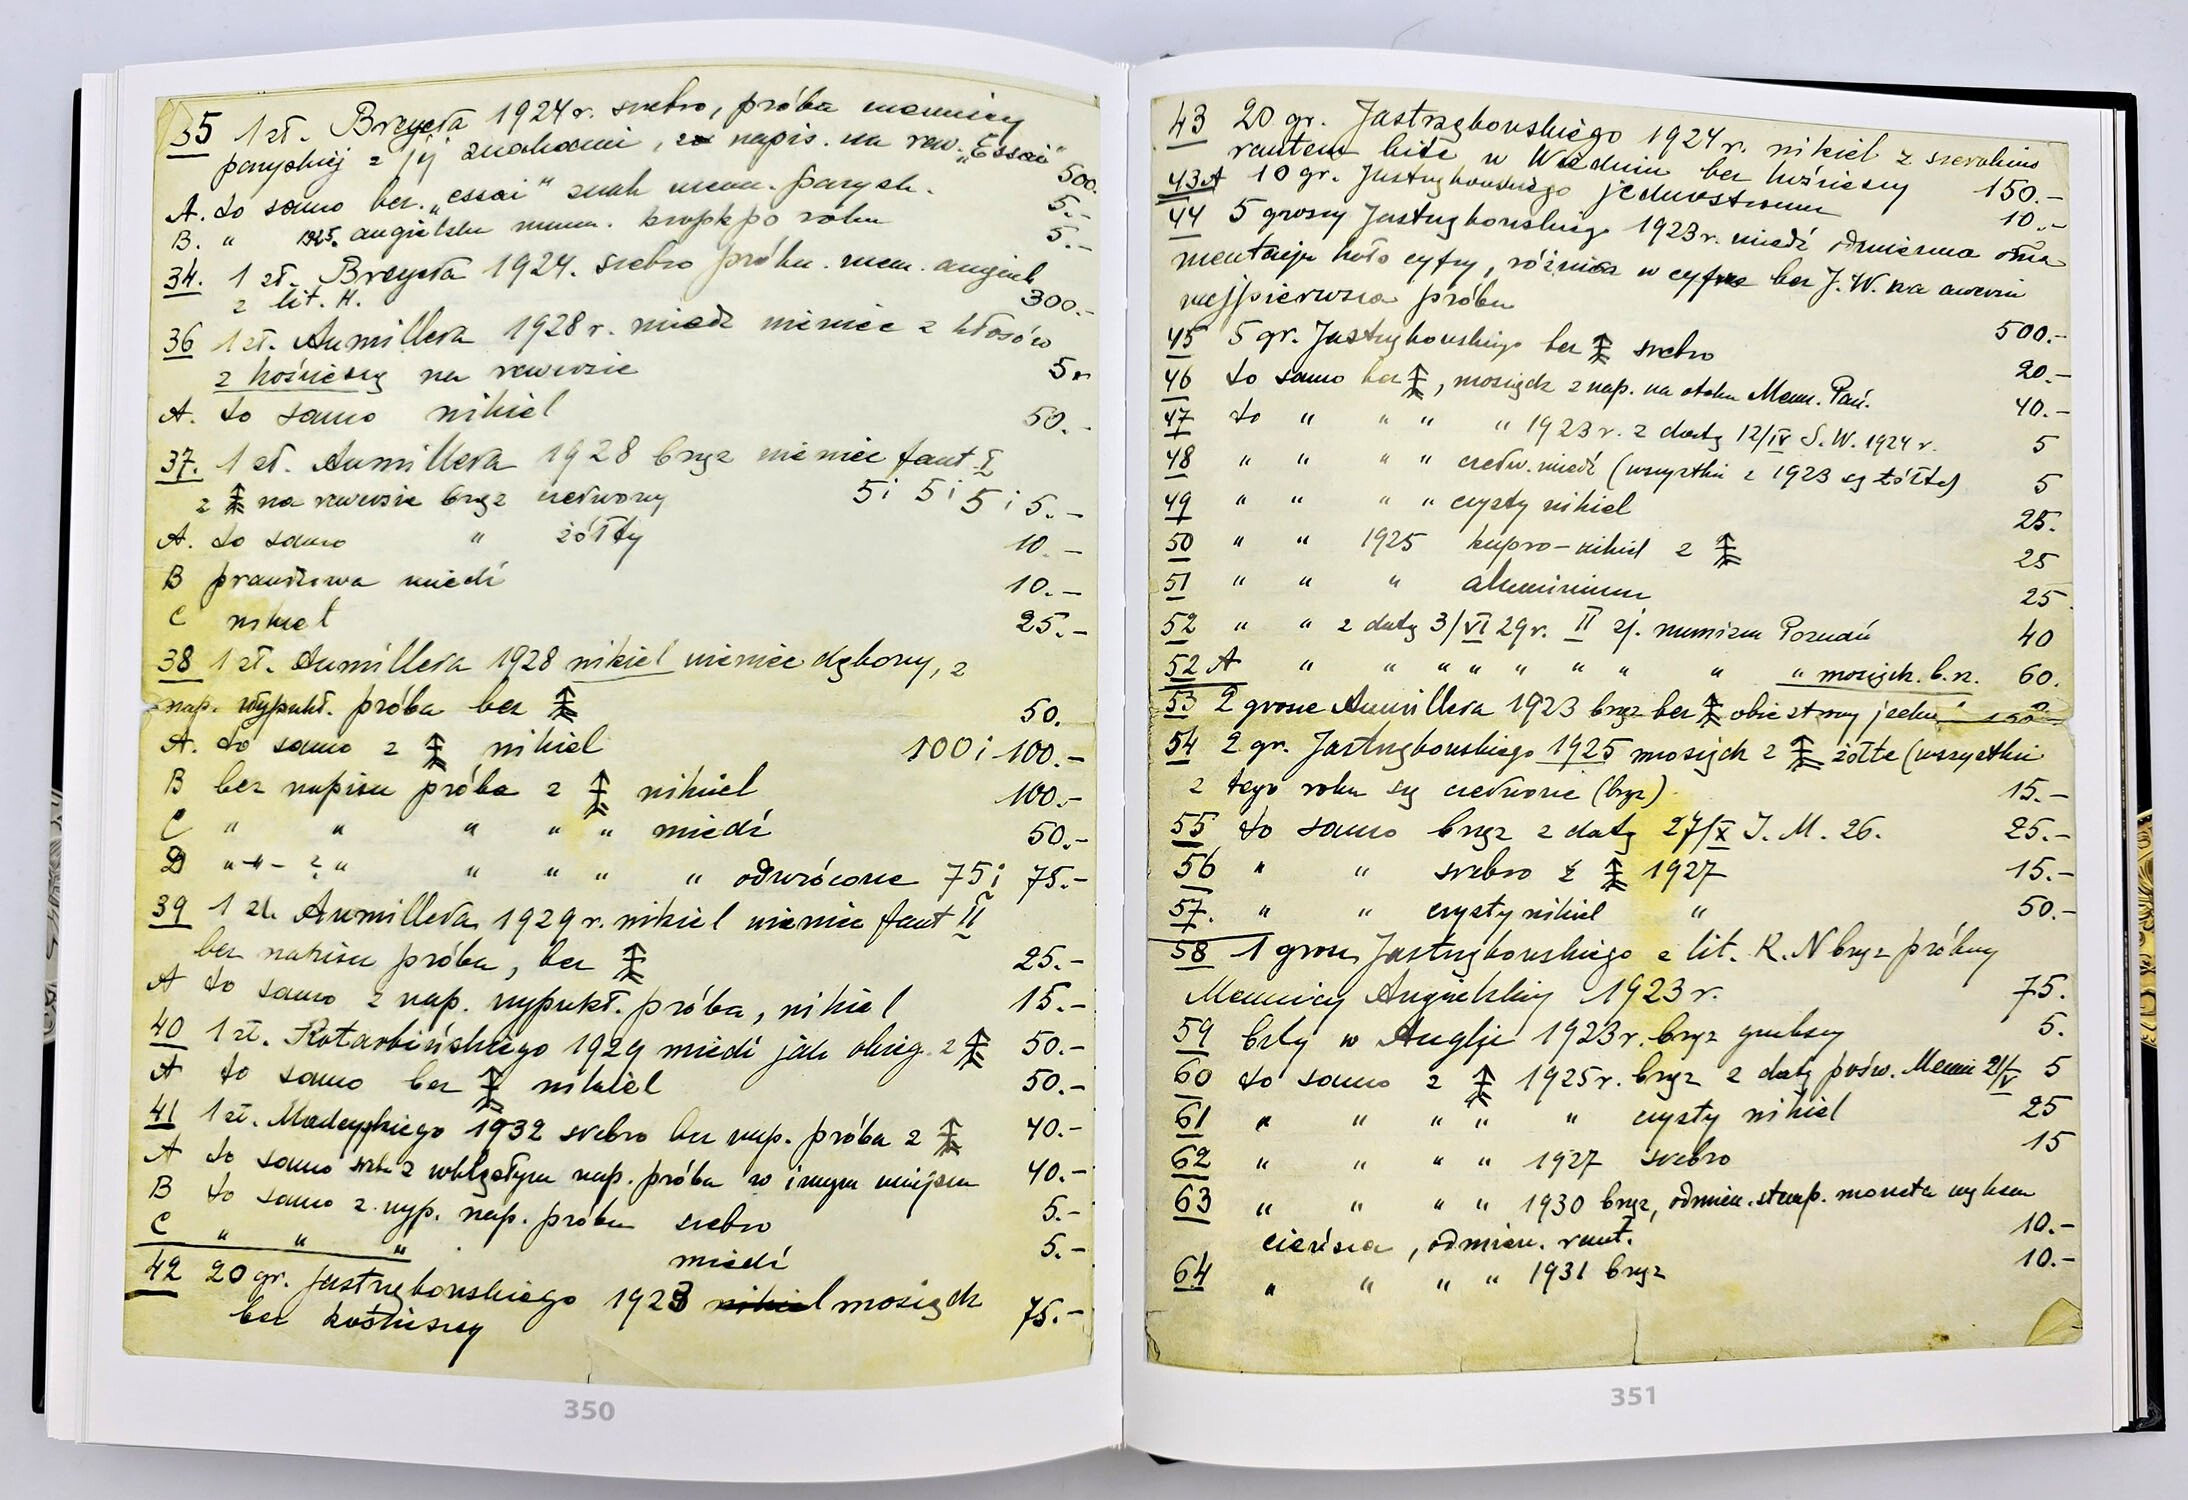 35 1 zł. Breyera 1924 r. srebro, próba mennicy
paryskiej z jej znakami, z napis. na rew. „Essai" 500.
A. to samo bez „essai" znak menn. parysk. 5.-
B. " 1925. angielska menn. kropk po roku 5.-
34. 1 zł. Breyera 1924. srebro próbn. men. angiel
z lit. H. 300.-
36 1 zł. Aumillera 1928 r. miedź wieniec z kłosów
z kośnieszy na rewersie
A. to samo nikiel 50.-
37. 1 zł. Aumillera 1928 brąz wieniec fant I
z na rewersie brąz czerwony 5 i 5 i 5 i 5.-
A. to samo " żółty 10.-
B prawdziwa miedź 10.-
C nikiel 25.-
38 1 zł. Aumillera 1928 nikiel wieniec dębowy, z
nap. wypukł. próba bez 50.
A. to samo z nikiel 100 i 100.-
B bez napisu próba z nikiel 100.-
C " " " " " miedź 50.-
D " " " " " " " odwrócone 75 i 75.-
39 1 zł. Aumillera 1929 r. nikiel wieniec fant II
bez napisu próba, bez 25.-
A to samo z nap. wypukł. próba, nikiel 15.-
40 1 zł. Kotarbińskiego 1929 miedź jak obieg. z 50.-
A to samo bez nikiel 50.-
41 1 zł. Madeyskiego 1932 srebro bez nap. próba z 40.-
A to samo z wklęsłym nap. próba w innym miejscu 40.-
B to samo z wyp. nap. próba srebro 5.-
C " " " miedź 5.-
42 20 gr. Jastrzębowskiego 1923 nikiel mosiądz
bez kośnieszy 75.-
350
43 20 gr. Jastrzębowskiego 1924 r. nikiel z szerokim
rantem bite w Wiedniu bez kośnieszy 150.-
43A 10 gr. Jastrzębowskiego jednostronna 10.-
44 5 groszy Jastrzębowskiego 1923 r. miedź odmienna orna
mentacja koło cyfry, różnica w cyfrze bez J.W. na awersie
najpierwsza próba 500.-
45 5 gr. Jastrzębowskiego bez srebro 20.-
46 to samo bez , mosiądz z nap. na otoku Menn. Pań. 40.-
47 to " " " " 1923 r. z datą 12/IV S.W. 1924 r. 5
48 " " " " czerw. miedź (wszystkie z 1923 są żółte) 5
49 " " " " czysty nikiel 25.
50 " " 1925 kupro-nikiel z 25
51 " " " aluminium 25
52 " " z datą 3/VI 29 r. II zj. numizm Poznań 40
52A " " " " " " " " " mosiądz. b. n. 60.
53 2 grosze Aumillera 1923 brąz bez obie strony jedn.
54 2 gr. Jastrzębowskiego 1925 mosiądz z żółte (wszystkie
z tego roku są czerwone (brąz) 15.-
55 to samo brąz z datą 27/X J. M. 26. 25.-
56 " " srebro z 1927 15.-
57. " " czysty nikiel " 50.-
58 1 grosz Jastrzębowskiego z lit. K.N brąz próbny
Mennicy Angielskiej 1923 r. 75.
59 bity w Anglji 1923 r. brąz grubszy 5.
60 to samo z 1925 r. brąz z datą pośw. Menni 21/V 5
61 " " " " " czysty nikiel 25
62 " " " " 1927 srebro 15
63 " " " " 1930 brąz, odmien. stemp. moneta
cieńsza, odmien. rant. 10.-
64 " " " " 1931 brąz 10.-
351